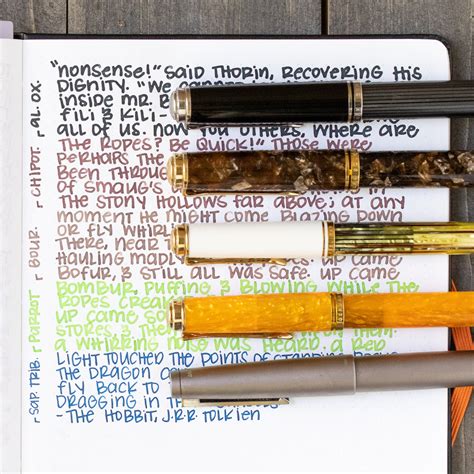 "NONSENSE!" SAID THORIN, RECOVERING HIS
DIGNITY. "WE CANNOT
INSIDE MR. B
FILI & KILI-
ALL OF US. NOW YOU OTHERS, WHERE ARE
THE ROPES? BE QUICK!" THOSE WERE
PERHAPS THE
BEEN THROUG
OF SMAUG'S
THE STONY HOLLOWS FAR ABOVE; AT ANY
MOMENT HE MIGHT COME BLAZING DOWN
OR FLY WHIRL
THERE, NEAR T
HAULING MADLY
BOFUR, & STILL ALL WAS SAFE. UP CAME
BOMBUR, PUFFING & BLOWING WHILE THE
ROPES CREAK
UP CAME SO
STORES & THE
A WHIRRING NOISE WAS HEARD. A RED
LIGHT TOUCHED THE POINTS OF STANDING ROCKS.
THE DRAGON CA
FLY BACK TO
DRAGGING IN TH
- THE HOBBIT, J.R.R. TOLKIEN
AL. OX.
CHIPOT.
BOUR.
PARROT
SAP. TRIB.